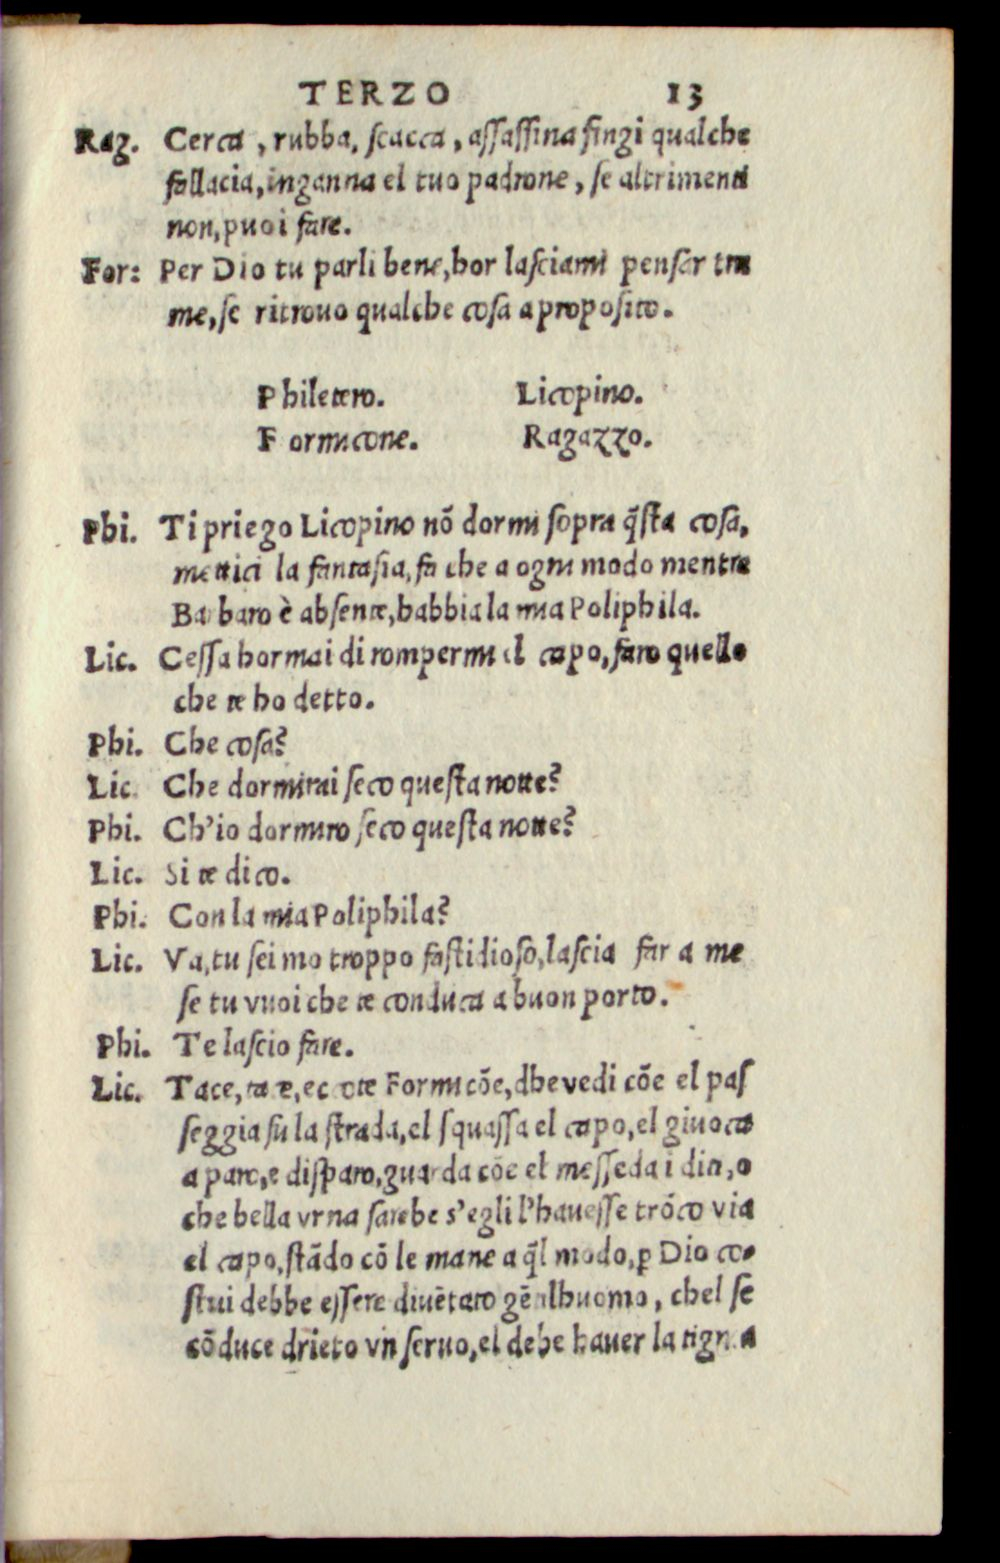 TERZO 13
Rag. Cerca, rubba, scacca, assassina fingi qualche
fallacia, inganna el tuo padrone, se altrimenti
non, puoi fare.
For: Per Dio tu parli bene, hor lasciami pensar tra
me, se ritrovo qualche cosa a proposito.
Philetero. Licopino.
Formicone. Ragazzo.
Phi. Ti priego Licopino nō dormi sopra q̄sta cosa,
mettici la fantasia, fa che a ogni modo mentre
Barbaro è absente, habbia la mia Poliphila.
Lic. Cessa hormai di rompermi el capo, faro quello
che te ho detto.
Phi. Che cosa?
Lic. Che dormirai seco questa notte?
Phi. Ch'io dormiro seco questa notte?
Lic. Si te dico.
Phi. Con la mia Poliphila?
Lic. Va, tu sei mo troppo fastidioso, lascia far a me
se tu vuoi che te conduca a buon porto.
Phi. Te lascio fare.
Lic. Tace, tace, eccote Formicōe, dhe vedi cōe el pas
seggia su la strada, el squassa el capo, el giuoca
a paro, e disparo, guarda cōe el messeda i diti, o
che bella vrna sarebe s'egli l'hauesse trōco via
el capo, stādo cō le mane a q̄l modo, ꝑ Dio co-
stui debbe essere diuētato gētilhuomo, chel se
cōduce drieto vn seruo, el debe hauer la tigna